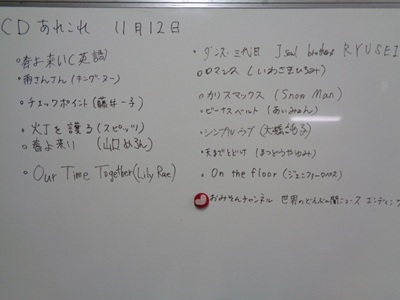 CDあれこれ 11月12日
春よ来い(英語)
・雨さんさん(キング・ヌー)
・チェックポイント(藤井一子)
・火丁を護る(スピッツ)
・春よ来い (山口めろん)
・Our Time Together(Lily Rae)
・ダンス・三代目 J soul brothers RYUSEI
・ロマンス(いわさきひろみ)
・カリスマックス(Snow Man)
・ビーナスベルト(あいみょん)
・シンプルラブ(大橋純子)
・天までとどけ(まつとうやゆみ)
・On the floor(ジェニファーロペス)
おみそんチャンネル 世界の ニュース エンディング